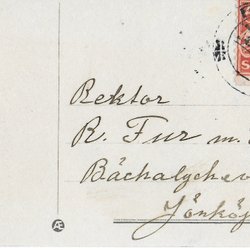 Rektor
R. Fur m.
Bäckalyckev
Jönköp
Æ
S